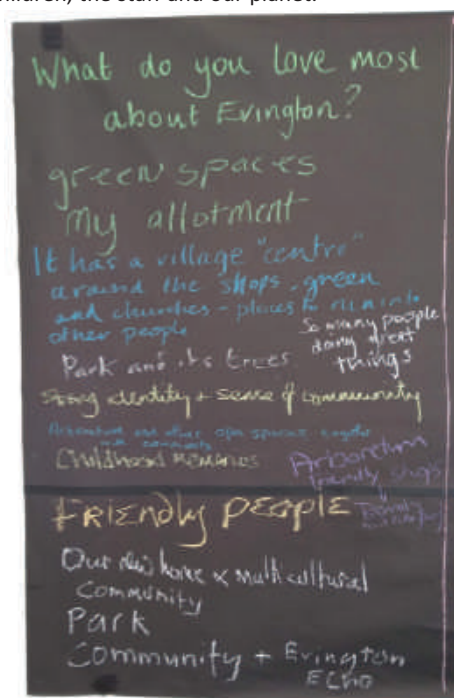 children, the staff and our planet.
What do you love most
about Evington?
green spaces
my allotment
It has a village "centre"
around the shops, green
and churches - places to run into
other people
So many people
doing great
things
Park and its trees
Strong identity + sense of community
Arboretum and other open spaces together
with community
Childhood Memories
Arboretum
friendly shops
FRIENDLY PEOPLE
Our new home & multicultural
Community
Park
Community + Evington
ECHO